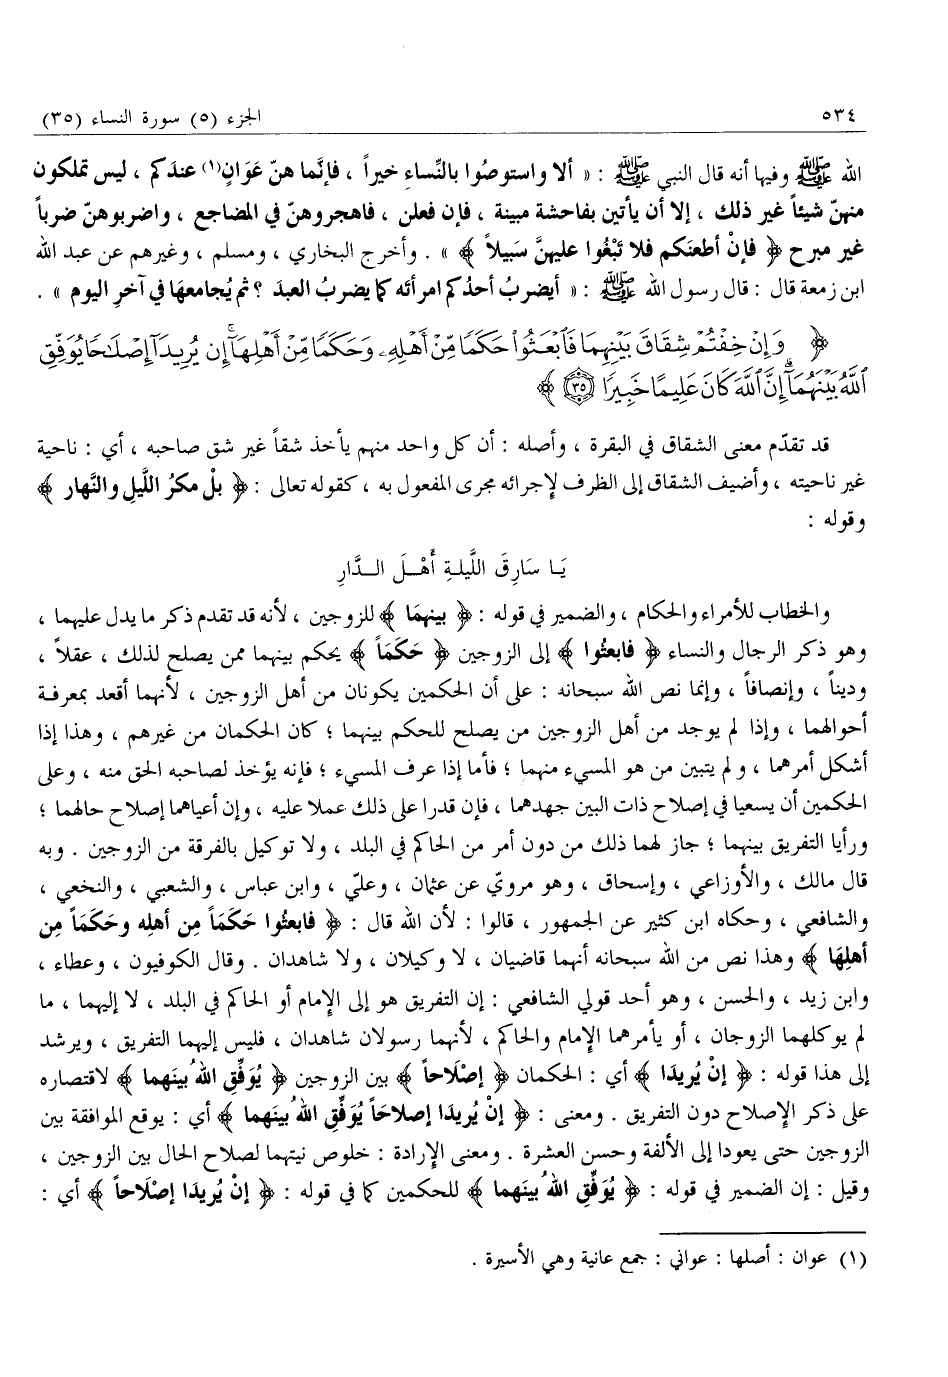 ٥٣٤ الجزء (٥) سورة النساء (٣٥)
الله ﷺ وفيها أنه قال النبي ﷺ : « ألا واستوصُوا بالنِّساءِ خيراً ، فإنَّما هنّ عَوَانٍ(١) عندَكم ، ليس تملكون
منهنّ شيئاً غير ذلك ، إلا أن يأتين بفاحشة مبينة ، فإن فعلن ، فاهجروهنّ في المضاجع ، واضربوهنّ ضرباً
غير مبرح ﴿ فإنْ أطعنَكم فلا تَبْغُوا عليهنَّ سَبيلاً ﴾ » . وأخرج البخاري ، ومسلم ، وغيرهم عن عبد الله
ابن زمعة قال : قال رسول الله ﷺ : « أيضربُ أحدُكم امرأته كما يضربُ العبدَ ؟ ثم يُجامعهَا في آخرِ اليوم » .
﴿ وَإِنْ خِفْتُمْ شِقَاقَ بَيْنِهِمَا فَٱبْعَثُوا۟ حَكَمًا مِّنْ أَهْلِهِۦ وَحَكَمًا مِّنْ أَهْلِهَآ إِن يُرِيدَآ إِصْلَٰحًا يُوَفِّقِ
ٱللَّهُ بَيْنَهُمَآ إِنَّ ٱللَّهَ كَانَ عَلِيمًا خَبِيرًا ٣٥ ﴾
قد تقدّم معنى الشقاق في البقرة ، وأصله : أن كل واحد منهم يأخذ شقاً غير شق صاحبه ، أي : ناحية
غير ناحيته ، وأضيف الشقاق إلى الظرف لإجرائه مجرى المفعول به ، كقوله تعالى : ﴿ بلْ مكرُ اللَّيلِ والنَّهار ﴾
وقوله :
يَـا سَارِقَ اللَّيلـةِ أَهْـلَ الـدَّارِ
والخطاب للأمراء والحكام ، والضمير في قوله : ﴿ بينهمَا ﴾ للزوجين ، لأنه قد تقدم ذكر ما يدل عليهما ،
وهو ذكر الرجال والنساء ﴿ فابعثُوا ﴾ إلى الزوجين ﴿ حَكَمَاً ﴾ يحكم بينهما ممن يصلح لذلك ، عقلاً ،
وديناً ، وإنصافاً ، وإنما نص الله سبحانه : على أن الحكمين يكونان من أهل الزوجين ، لأنهما أقعد بمعرفـة
أحوالهما ، وإذا لم يوجد من أهل الزوجين من يصلح للحكم بينهما ؛ كان الحكمان من غيرهم ، وهذا إذا
أشكل أمرهما ، ولم يتبين من هو المسيء منهما ؛ فأما إذا عرف المسيء ؛ فإنه يؤخذ لصاحبه الحق منه ، وعلى
الحكمين أن يسعيا في إصلاح ذات البين جهدهما ، فإن قدرا على ذلك عملا عليه ، وإن أعياهما إصلاح حالهما ؛
ورأيا التفريق بينهما ؛ جاز لهما ذلك من دون أمر من الحاكم في البلد ، ولا توكيل بالفرقة من الزوجين . وبه
قال مالك ، والأوزاعي ، وإسحاق ، وهو مرويّ عن عثمان ، وعليّ ، وابن عباس ، والشعبي ، والنخعي ،
والشافعي ، وحكاه ابن كثير عن الجمهور ، قالوا : لأن الله قال : ﴿ فابعثُوا حَكَمَاً مِن أهلِه وحَكَمَاً مِن
أهلِهَا ﴾ وهذا نص من الله سبحانه أنهما قاضيان ، لا وكيلان ، ولا شاهدان . وقال الكوفيون ، وعطاء ،
وابن زيد ، والحسن ، وهو أحد قولي الشافعي : إن التفريق هو إلى الإمام أو الحاكم في البلد ، لا إليهما ، ما
لم يوكلهما الزوجان ، أو يأمرهما الإمام والحاكم ، لأنهما رسولان شاهدان ، فليس إليهما التفريق ، ويرشد
إلى هذا قوله : ﴿ إنْ يُريدَا ﴾ أي : الحكمان ﴿ إصْلَاحاً ﴾ بين الزوجين ﴿ يُوَفِّقِ اللهُ بينَهما ﴾ لاقتصاره
على ذكر الإصلاح دون التفريق . ومعنى : ﴿ إنْ يُريدَا إصلاحَاً يُوَفِّقِ اللهُ بينَهما ﴾ أي : يوقع الموافقة بين
الزوجين حتى يعودا إلى الألفة وحسن العشرة . ومعنى الإرادة : خلوص نيتهما لصلاح الحال بين الزوجين ،
وقيل : إن الضمير في قوله : ﴿ يُوَفِّقِ اللهُ بينَهما ﴾ للحكمين كما في قوله : ﴿ إنْ يُريدَا إصْلَاحاً ﴾ أي :
(١) عوان : أصلها : عواني : جمع عانية وهي الأسيرة .